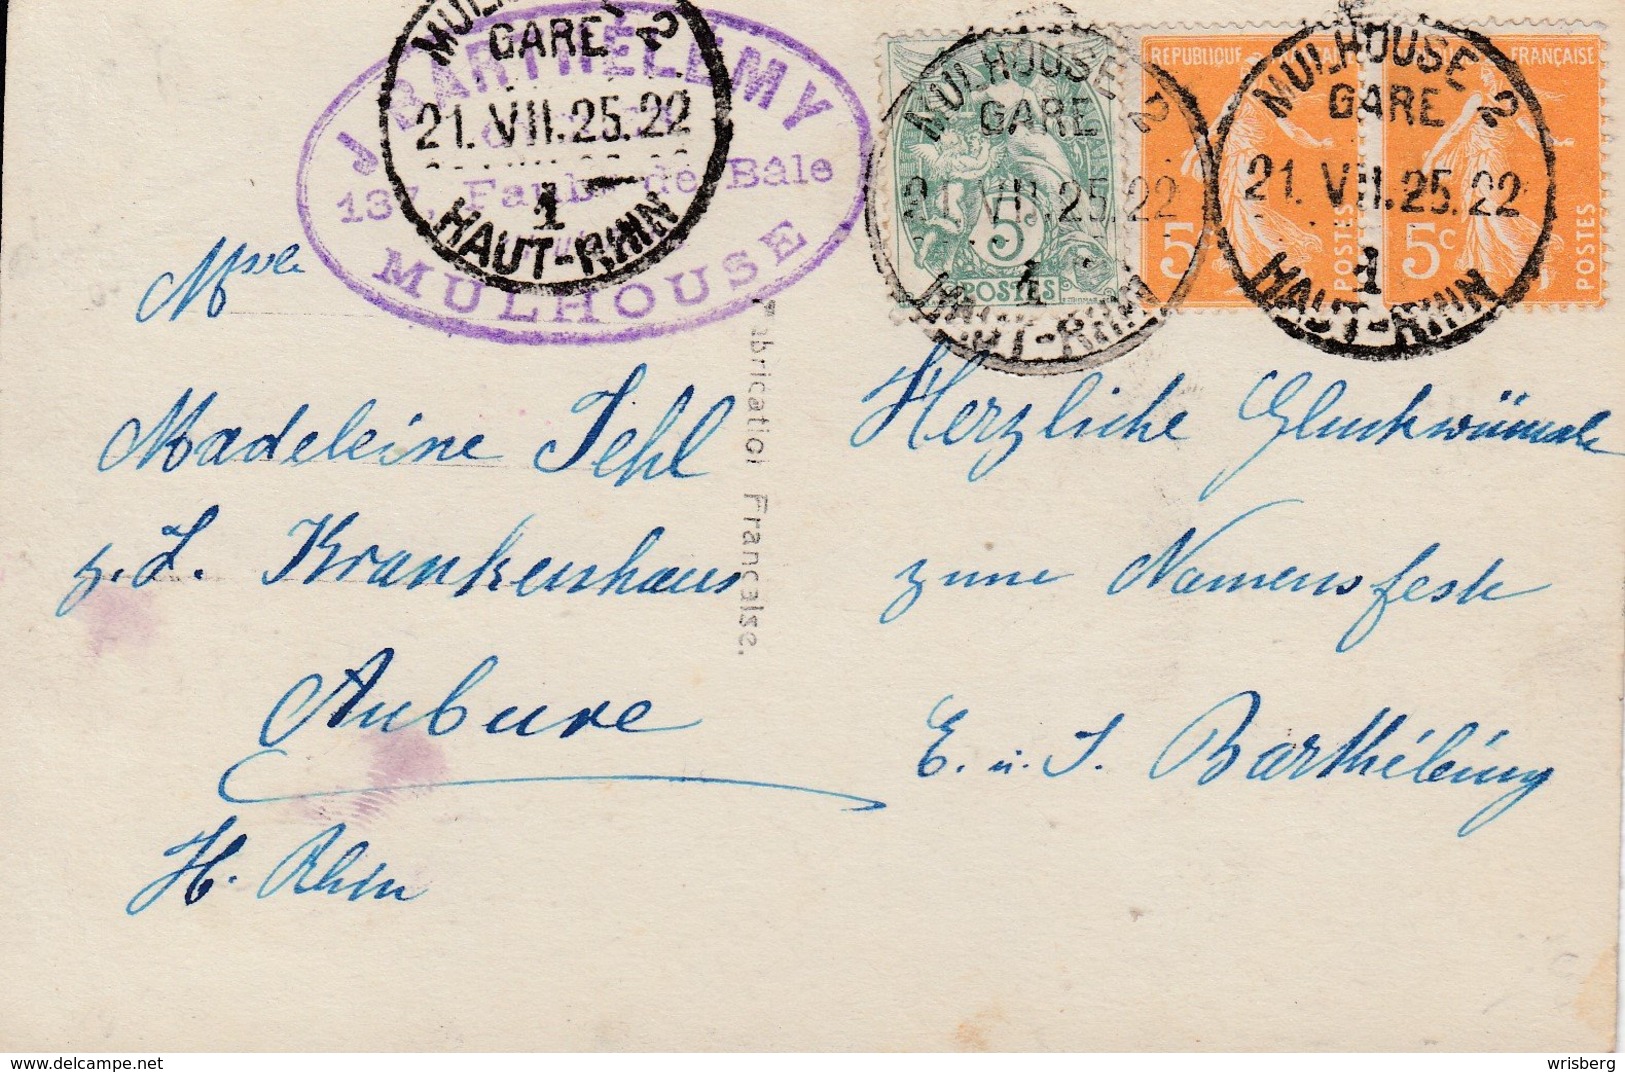 J. BARTHÉLEMY
137, Faubg de Bâle
MULHOUSE
GARE 2
21.VII.25.22
1
HAUT-RHIN
MULHOUSE 2
GARE
21.VII.25.22
1
HAUT-RHIN
5c
POSTES
MULHOUSE 2
GARE
21.VII.25.22
1
HAUT-RHIN
REPUBLIQUE
FRANÇAISE
5c
POSTES
5c
POSTES
Melle
Madeleine Jehl
z. Z. Krankenhaus
Aubure
H. Rhin
Fabrication Française.
Herzliche Glückwünsche
zum Namensfeste
E. u. J. Barthélémy
delcampe.net
wrisberg